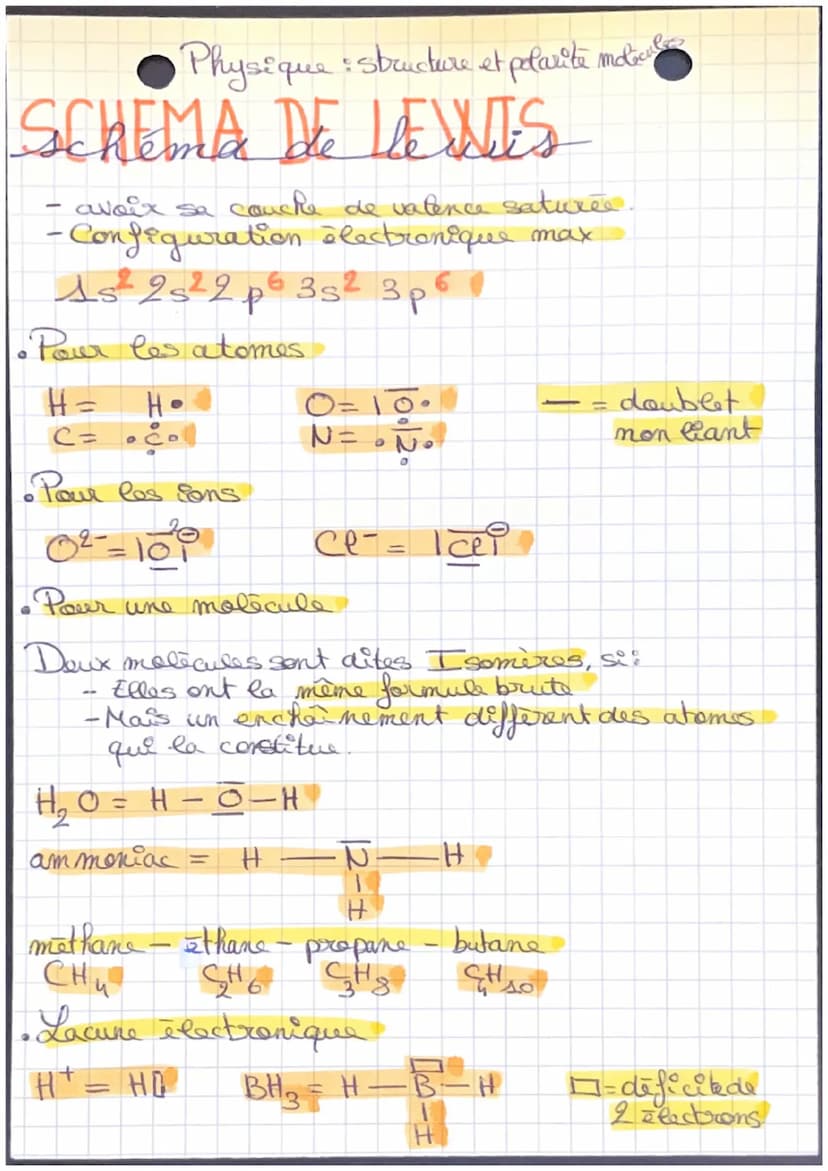 Physique : structure et polarité molécules
SCHEMA DE LEWIS
schéma de lewis
- avoir sa couche de valence saturée.
- Configuration électronique max
1s² 2s² 2p⁶ 3s² 3p⁶
• Pour les atomes
H = H• O = |O̅• — = doublet
C = •C• N = •N̅• non liant
• Pour les ions
O²⁻ = |O|²⊖ Cl⁻ = |Cl|⊖
• Pour une molécule
Deux molécules sont dites Isomères, si :
- Elles ont la même formule brute
- Mais un enchaînement différent des atomes
qui la constitue.
H₂O = H — O — H
ammoniac = H — N — H
|
H
méthane - éthane - propane - butane
CH₄ C₂H₆ C₃H₈ C₄H₁₀
• Lacune électronique
H⁺ = H▯ BH₃ = H — B — H ▭ = déficit de
| 2 électrons
H